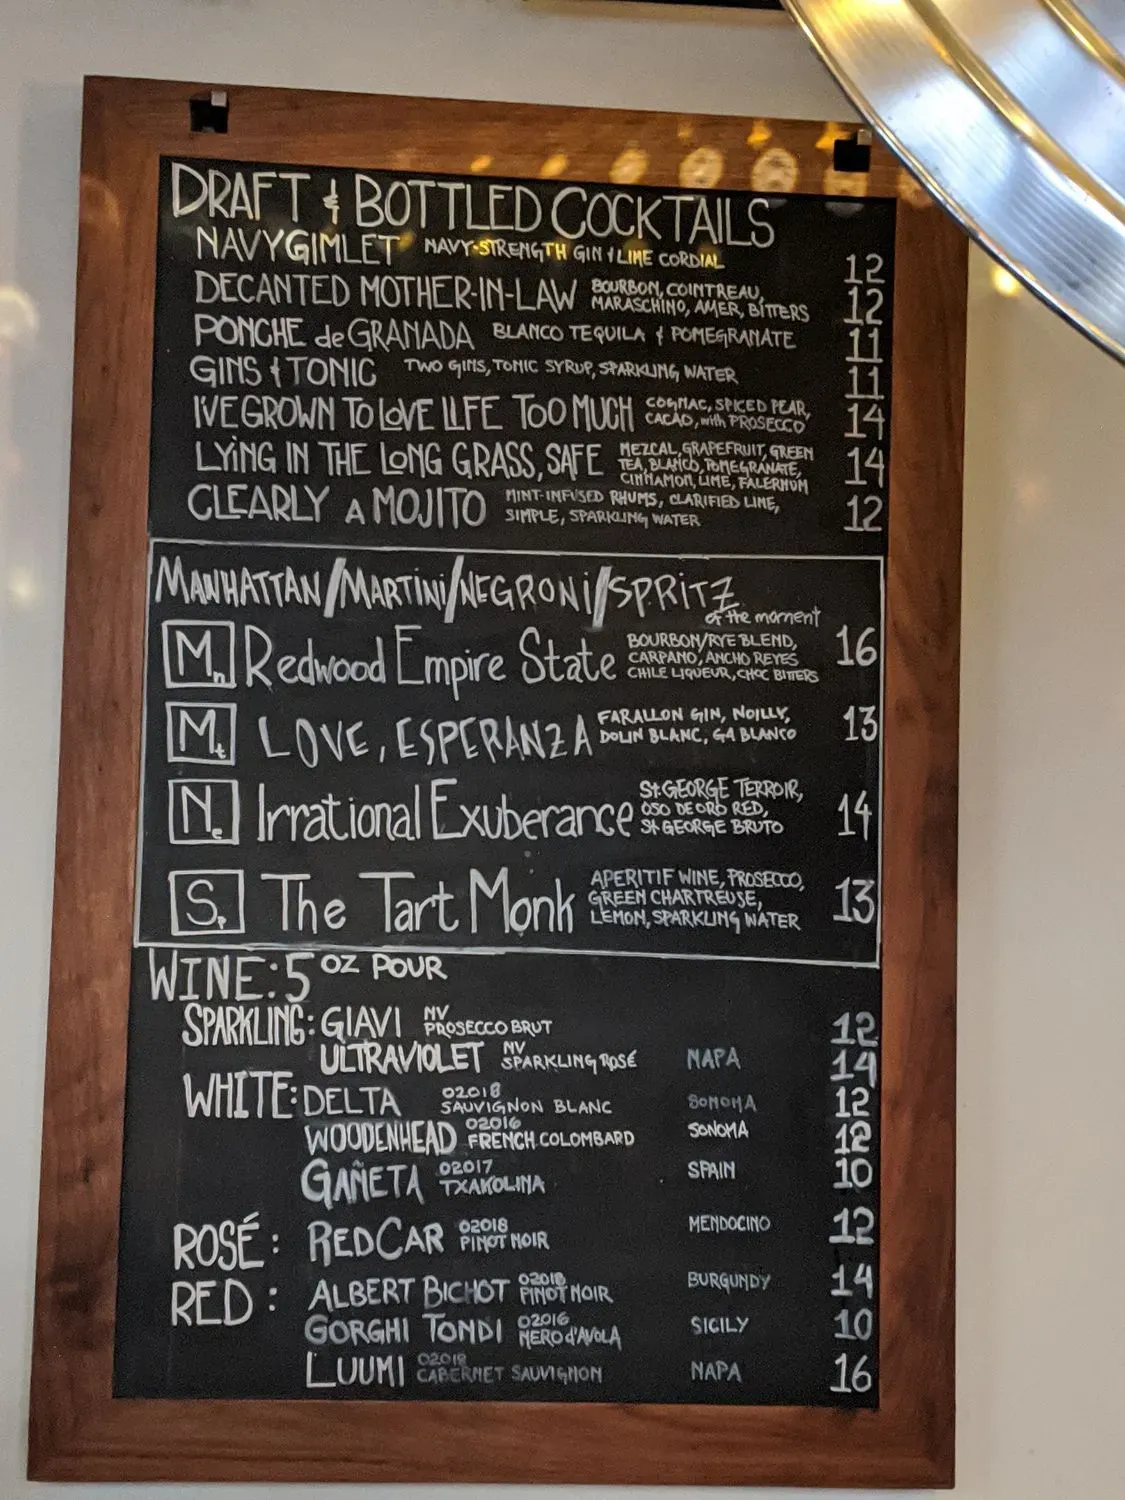 DRAFT & BOTTLED COCKTAILS
NAVY GIMLET NAVY-STRENGTH GIN & LIME CORDIAL 12
DECANTED MOTHER-IN-LAW BOURBON, COINTREAU,
MARASCHINO, AMER, BITTERS 12
PONCHE de GRANADA BLANCO TEQUILA & POMEGRANATE 11
GINS & TONIC TWO GINS, TONIC SYRUP, SPARKLING WATER 11
I'VE GROWN TO LOVE LIFE TOO MUCH COGNAC, SPICED PEAR,
CACAO, with PROSECCO 14
LYING IN THE LONG GRASS, SAFE MEZCAL, GRAPEFRUIT, GREEN
TEA, BLANCO, POMEGRANATE,
CINNAMON, LIME, FALERNUM 14
CLEARLY A MOJITO MINT-INFUSED RHUMS, CLARIFIED LIME,
SIMPLE, SPARKLING WATER 12
MANHATTAN/MARTINI/NEGRONI/SPRITZ
of the moment
Mn Redwood Empire State BOURBON/RYE BLEND,
CARPANO, ANCHO REYES
CHILE LIQUEUR, CHOC BITTERS 16
Mt LOVE, ESPERANZA FARALLON GIN, NOILLY,
DOLIN BLANC, G4 BLANCO 13
Ne Irrational Exuberance St. GEORGE TERROIR,
OSO DE ORO RED,
St. GEORGE BRUTO 14
Sp The Tart Monk APERITIF WINE, PROSECCO,
GREEN CHARTREUSE,
LEMON, SPARKLING WATER 13
WINE: 5 OZ POUR
SPARKLING: GIAVI NV
PROSECCO BRUT 12
ULTRAVIOLET NV
SPARKLING ROSÉ NAPA 14
WHITE: DELTA 02018
SAUVIGNON BLANC SONOMA 12
WOODENHEAD 02016
FRENCH COLOMBARD SONOMA 12
GAÑETA 02017
TXAKOLINA SPAIN 10
ROSÉ: RED CAR 02018
PINOT NOIR MENDOCINO 12
RED: ALBERT BICHOT 02018
PINOT NOIR BURGUNDY 14
GORGHI TONDI 02016
NERO d'AVOLA SICILY 10
LUUMI 02018
CABERNET SAUVIGNON NAPA 16